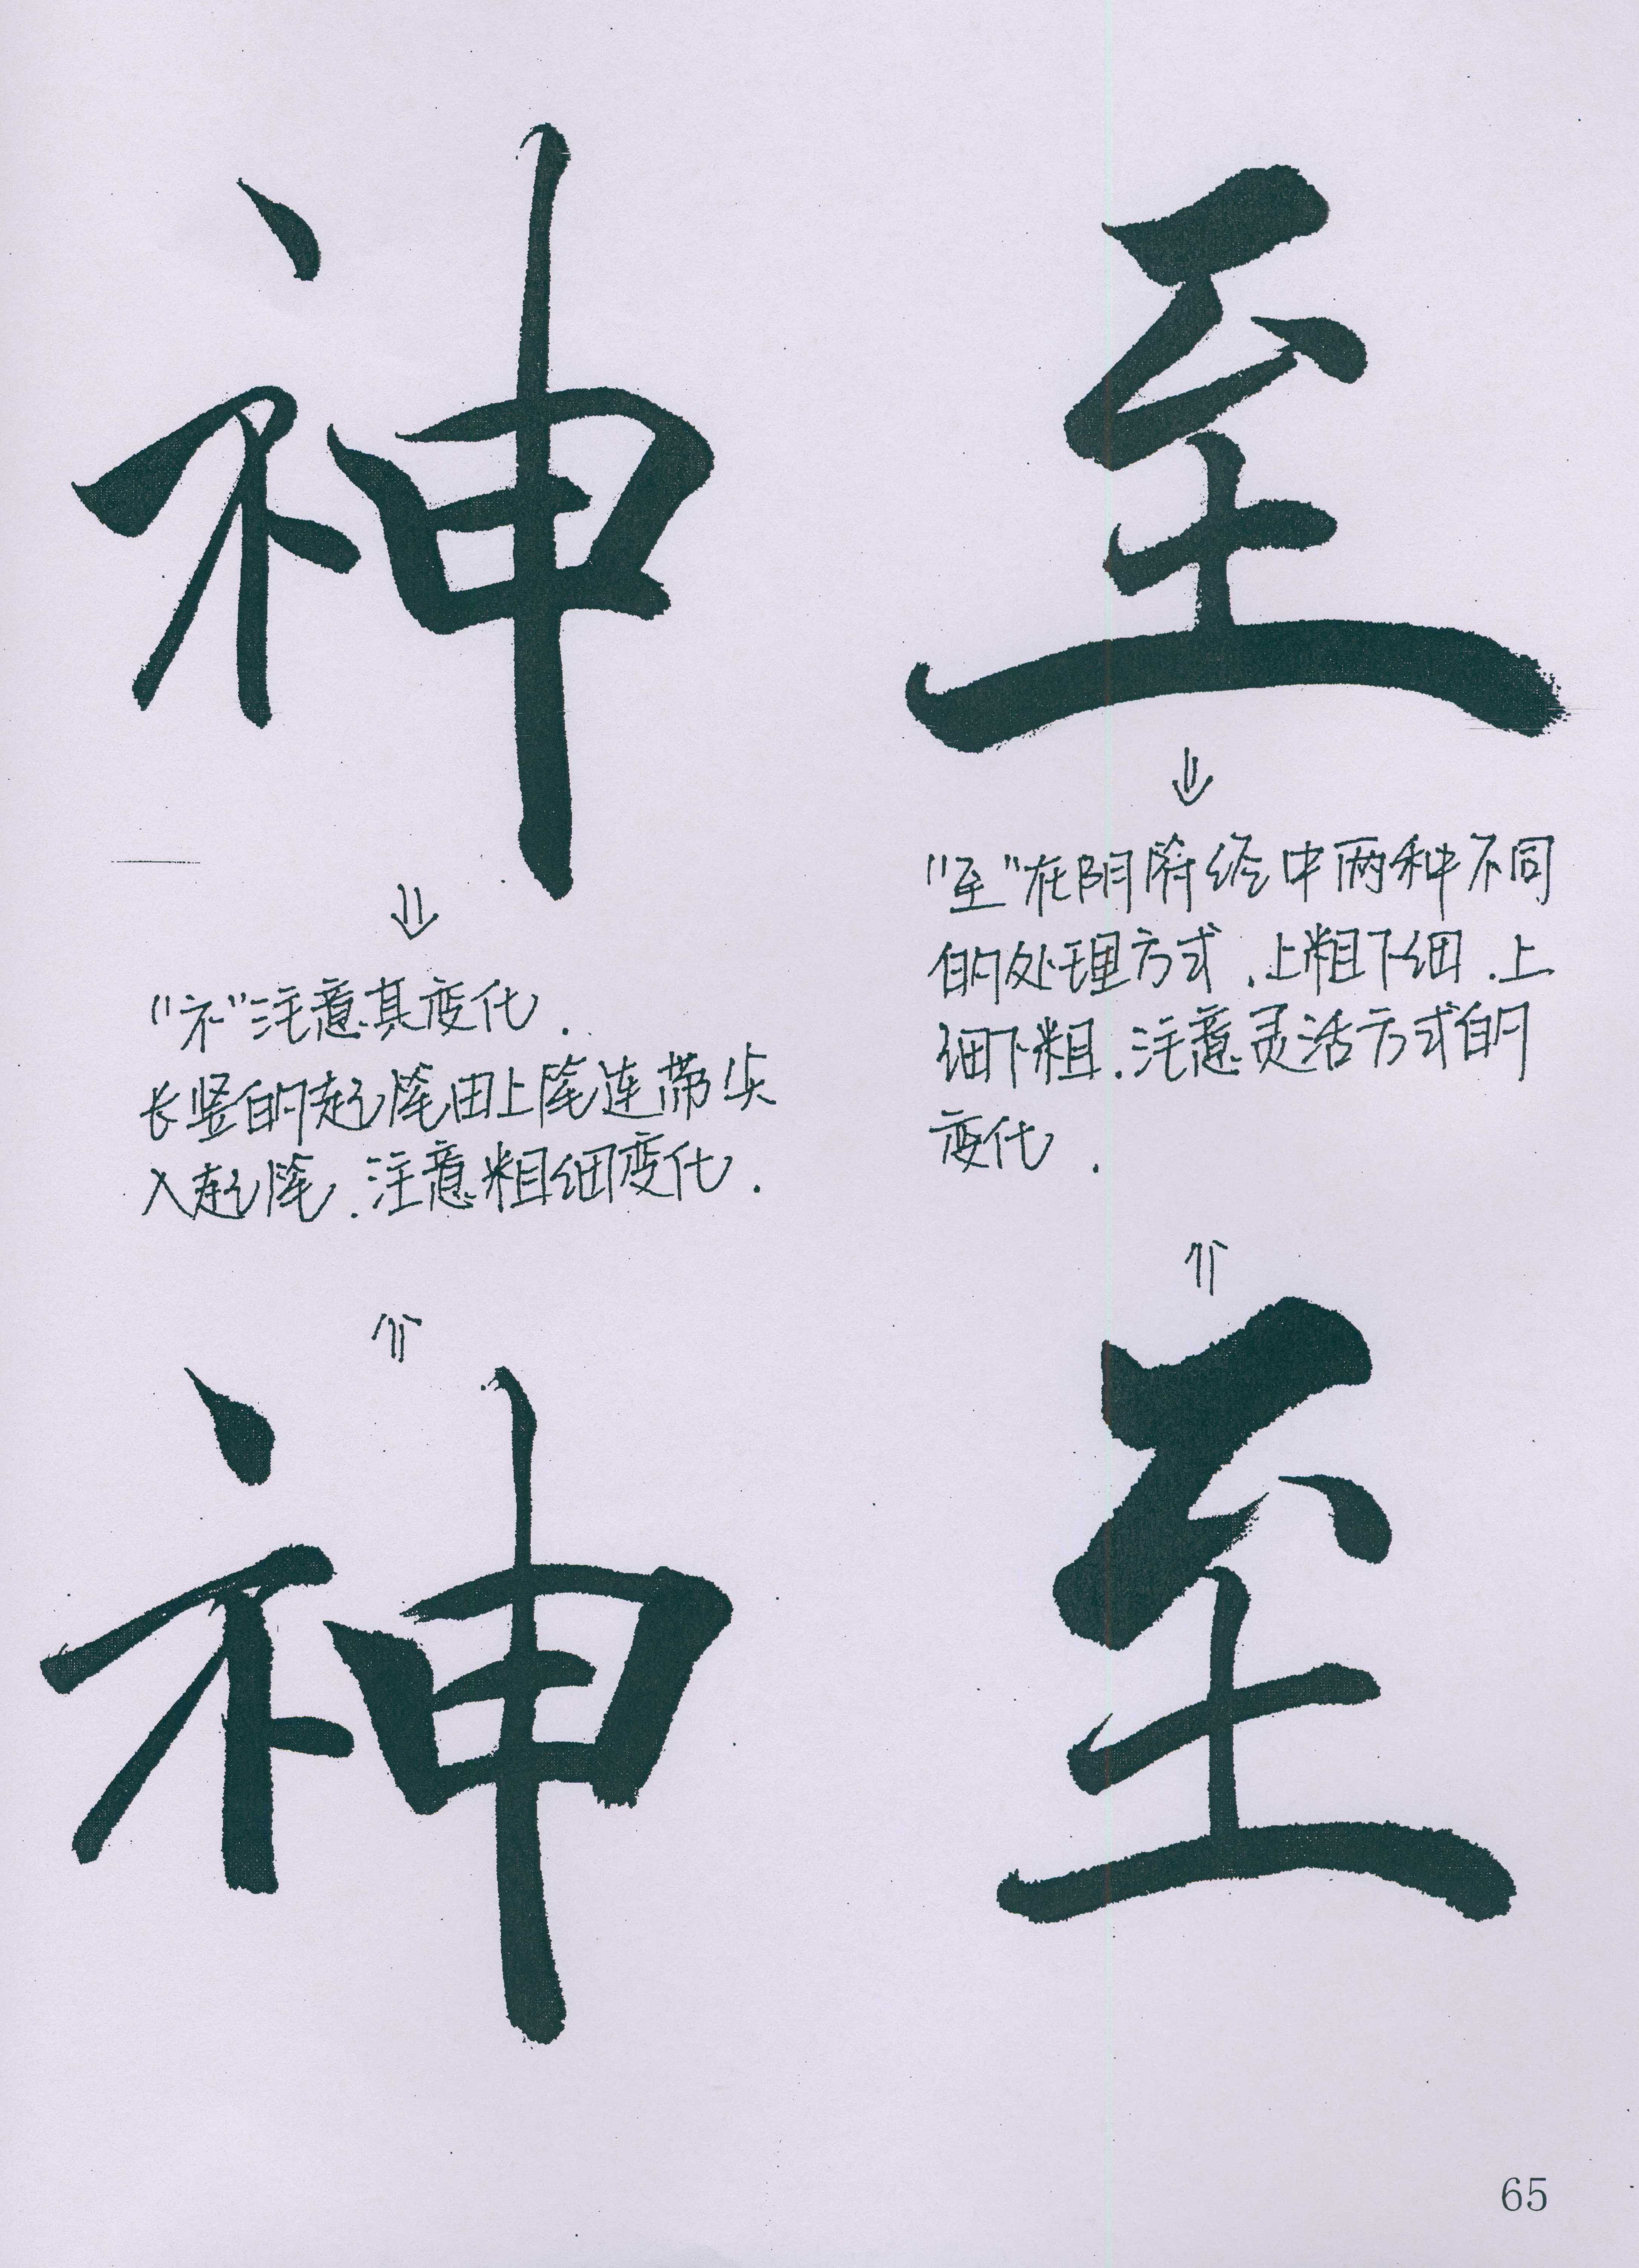 神
"礻"注意其变化.
长竖的起笔由上笔连带尖
入起笔.注意粗细变化.
神
至
"至"在阴符经中两种不同
的处理方式.上粗下细.上
细下粗.注意灵活方式的
变化.
至
65